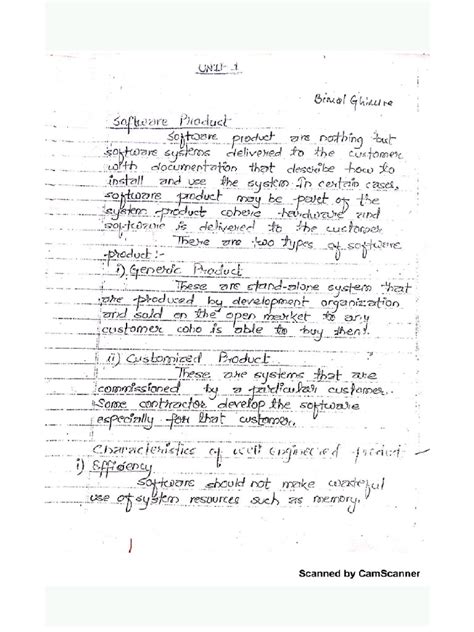 UNIT-1
Bimal Ghimire
Software Product
Software product are nothing but
software systems delivered to the customer
with documentation that describe how to
install and use the system. In certain cases,
software product may be part of the
system product where hardware and
software is delivered to the customer
There are two types of software
product :-
i) Generic Product
These are stand-alone system that
are produced by development organization
and sold on the open market to any
customer who is able to buy them.
ii) Customized Product
These are systems that are
commissioned by a particular customer.
Some contractor develop the software
especially for that customer.
Characteristics of well engineered product
i) Efficiency
Software should not make wasteful
use of system resources such as memory.
Scanned by CamScanner